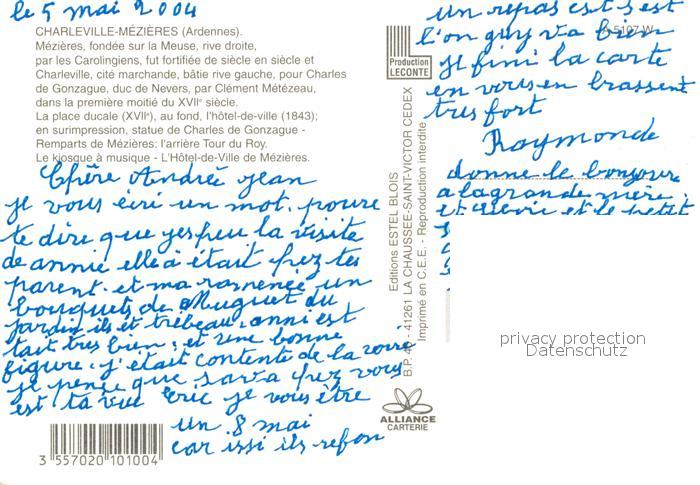 le 5 mai 2004
CHARLEVILLE-MÉZIÈRES (Ardennes).
Mézières, fondée sur la Meuse, rive droite,
par les Carolingiens, fut fortifiée de siècle en siècle et
Charleville, cité marchande, bâtie rive gauche, pour Charles
de Gonzague, duc de Nevers, par Clément Métézeau,
dans la première moitié du XVIIe siècle.
La place ducale (XVIIe), au fond, l'hôtel-de-ville (1843);
en surimpression, statue de Charles de Gonzague -
Remparts de Mézières: l'arrière Tour du Roy.
Le kiosque à musique - L'Hôtel-de-Ville de Mézières.
Chère Andrée jean
je vous écri un mot. pour
te dire que
la visite
de annie elle à était chez tes
parent. et ma ramenée un
bouquets de Muguet du
jardin. ils et
beau. anni est
tait tres bien. et une bonne
figure. j'était contente de la voire
je pense que sava chez vous
est ta vue Eric je vous être
un 8 mai
car issi ils
3 557020 101004
ALLIANCE
CARTERIE
Production
LECONTE
Editions ESTEL BLOIS
B.P. 4
- 41261 LA CHAUSSEE-SAINT-VICTOR CEDEX
Imprimé en C.E.E. - Reproduction interdite
un repas est s'est
5107 W
l'on guy va bien
je fini la carte
en vous en brassent
tres fort
Raymonde
donne le bonjour
a la grande mère.
et
et le petit
privacy protection
Datenschutz